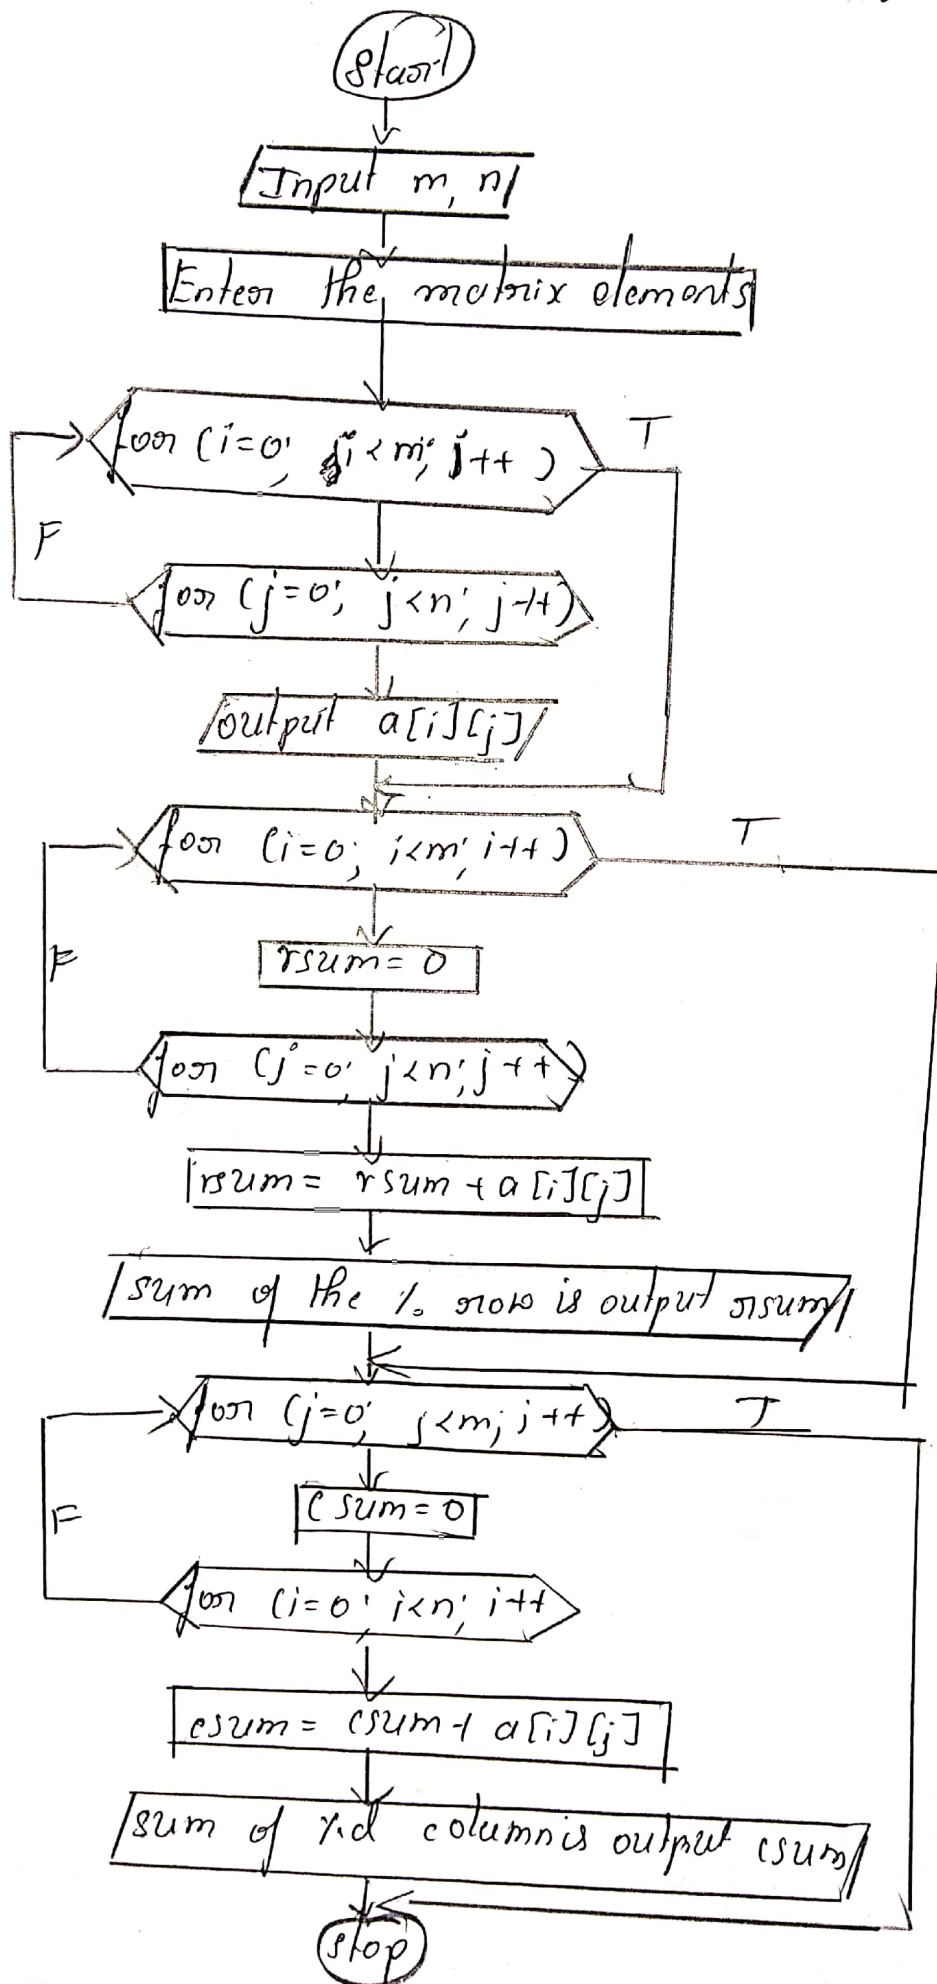 Start
Input m, n
Enter the matrix elements
for (i=0; i<m; i++)
T
F
for (j=0; j<n; j++)
output a[i][j]
for (i=0; i<m; i++)
T
F
rsum = 0
for (j=0; j<n; j++)
rsum = rsum + a[i][j]
sum of the %. row is output rsum
for (j=0; j<m; j++)
T
F
csum = 0
for (i=0; i<n; i++
csum = csum + a[i][j]
sum of %d column is output csum
stop